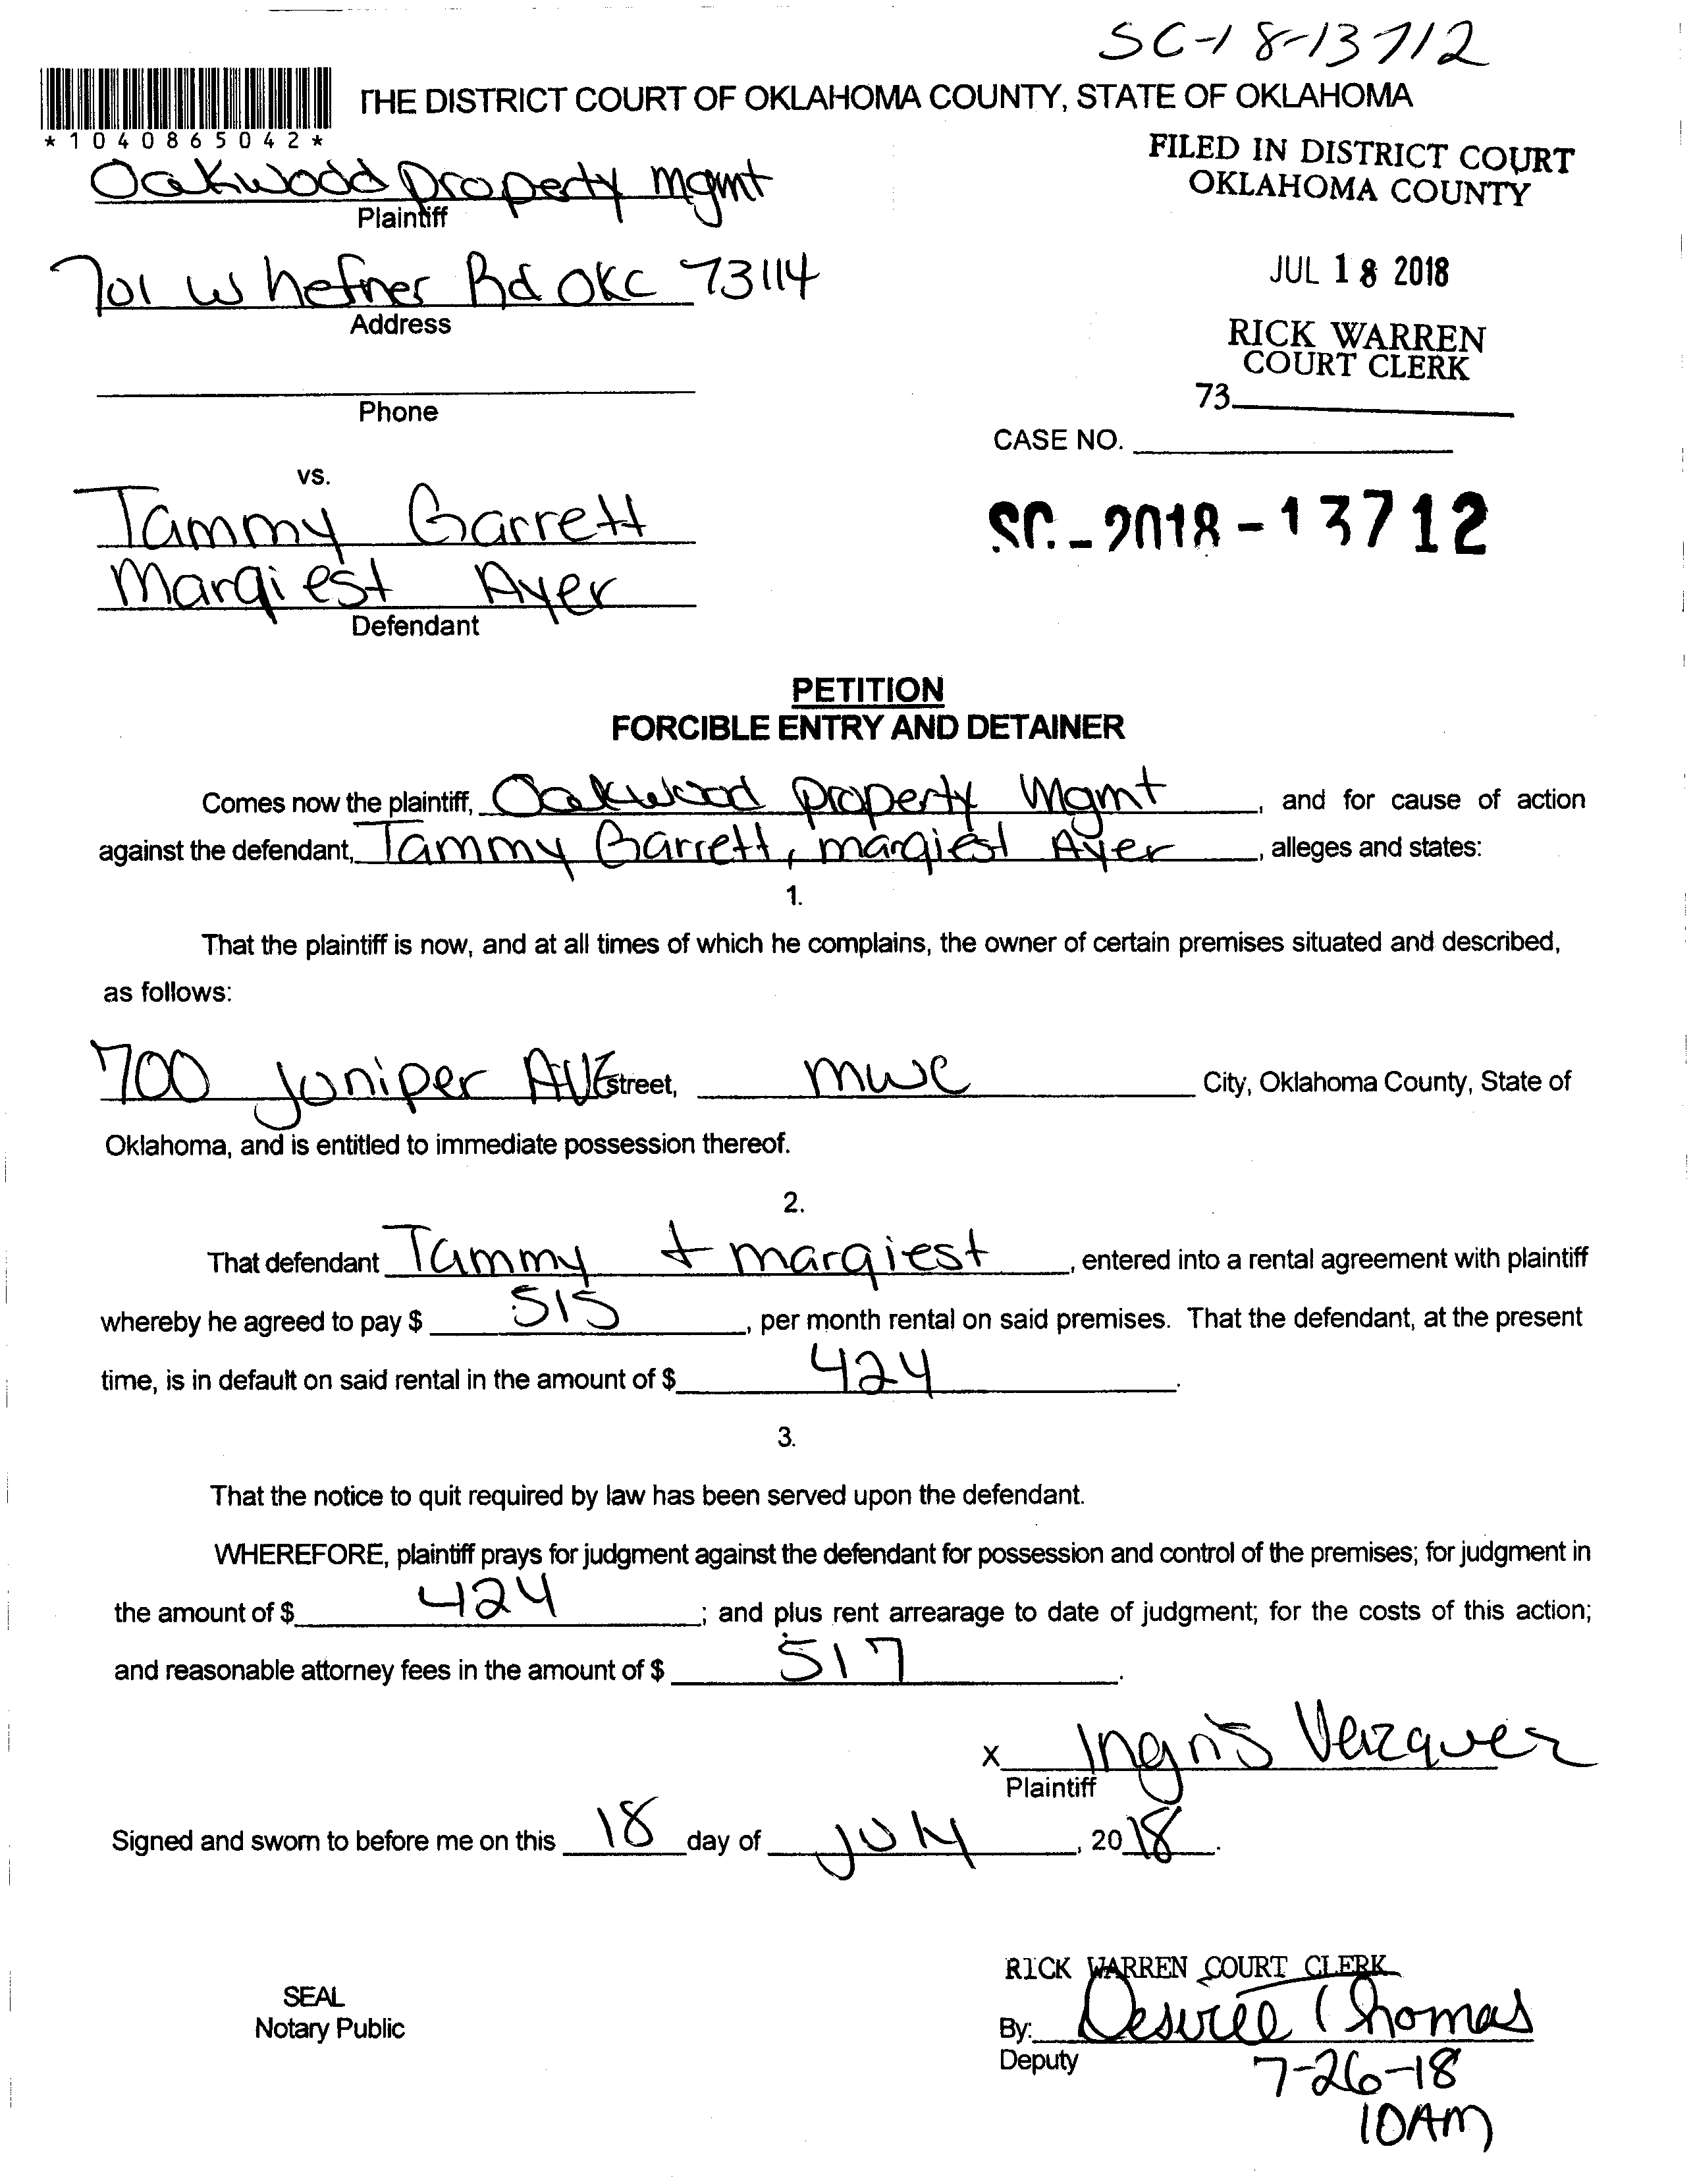 SC-18-13712
THE DISTRICT COURT OF OKLAHOMA COUNTY, STATE OF OKLAHOMA
*1040865042*
FILED IN DISTRICT COURT
OKLAHOMA COUNTY
Oakwood property mgmt
Plaintiff
701 W hefner Rd OKC 73114
Address
JUL 18 2018
RICK WARREN
COURT CLERK
73
Phone
CASE NO.
vs.
SC-2018-13712
Tammy Garrett
Marqiest Ayer
Defendant
PETITION
FORCIBLE ENTRY AND DETAINER
Comes now the plaintiff, Oakwood property Mgmt, and for cause of action
against the defendant, Tammy Garrett, marqiest Ayer, alleges and states:
1.
That the plaintiff is now, and at all times of which he complains, the owner of certain premises situated and described,
as follows:
700 juniper AVE Street, mwc City, Oklahoma County, State of
Oklahoma, and is entitled to immediate possession thereof.
2.
That defendant Tammy + marqiest, entered into a rental agreement with plaintiff
whereby he agreed to pay $ 515, per month rental on said premises. That the defendant, at the present
time, is in default on said rental in the amount of $ 424.
3.
That the notice to quit required by law has been served upon the defendant.
WHEREFORE, plaintiff prays for judgment against the defendant for possession and control of the premises; for judgment in
the amount of $ 424; and plus rent arrearage to date of judgment; for the costs of this action;
and reasonable attorney fees in the amount of $ 517.
x Ingris Vazquez
Plaintiff
Signed and sworn to before me on this 18 day of July, 2018.
RICK WARREN COURT CLERK
SEAL
Notary Public
By: Desiree Thomas
Deputy
7-26-18
10AM